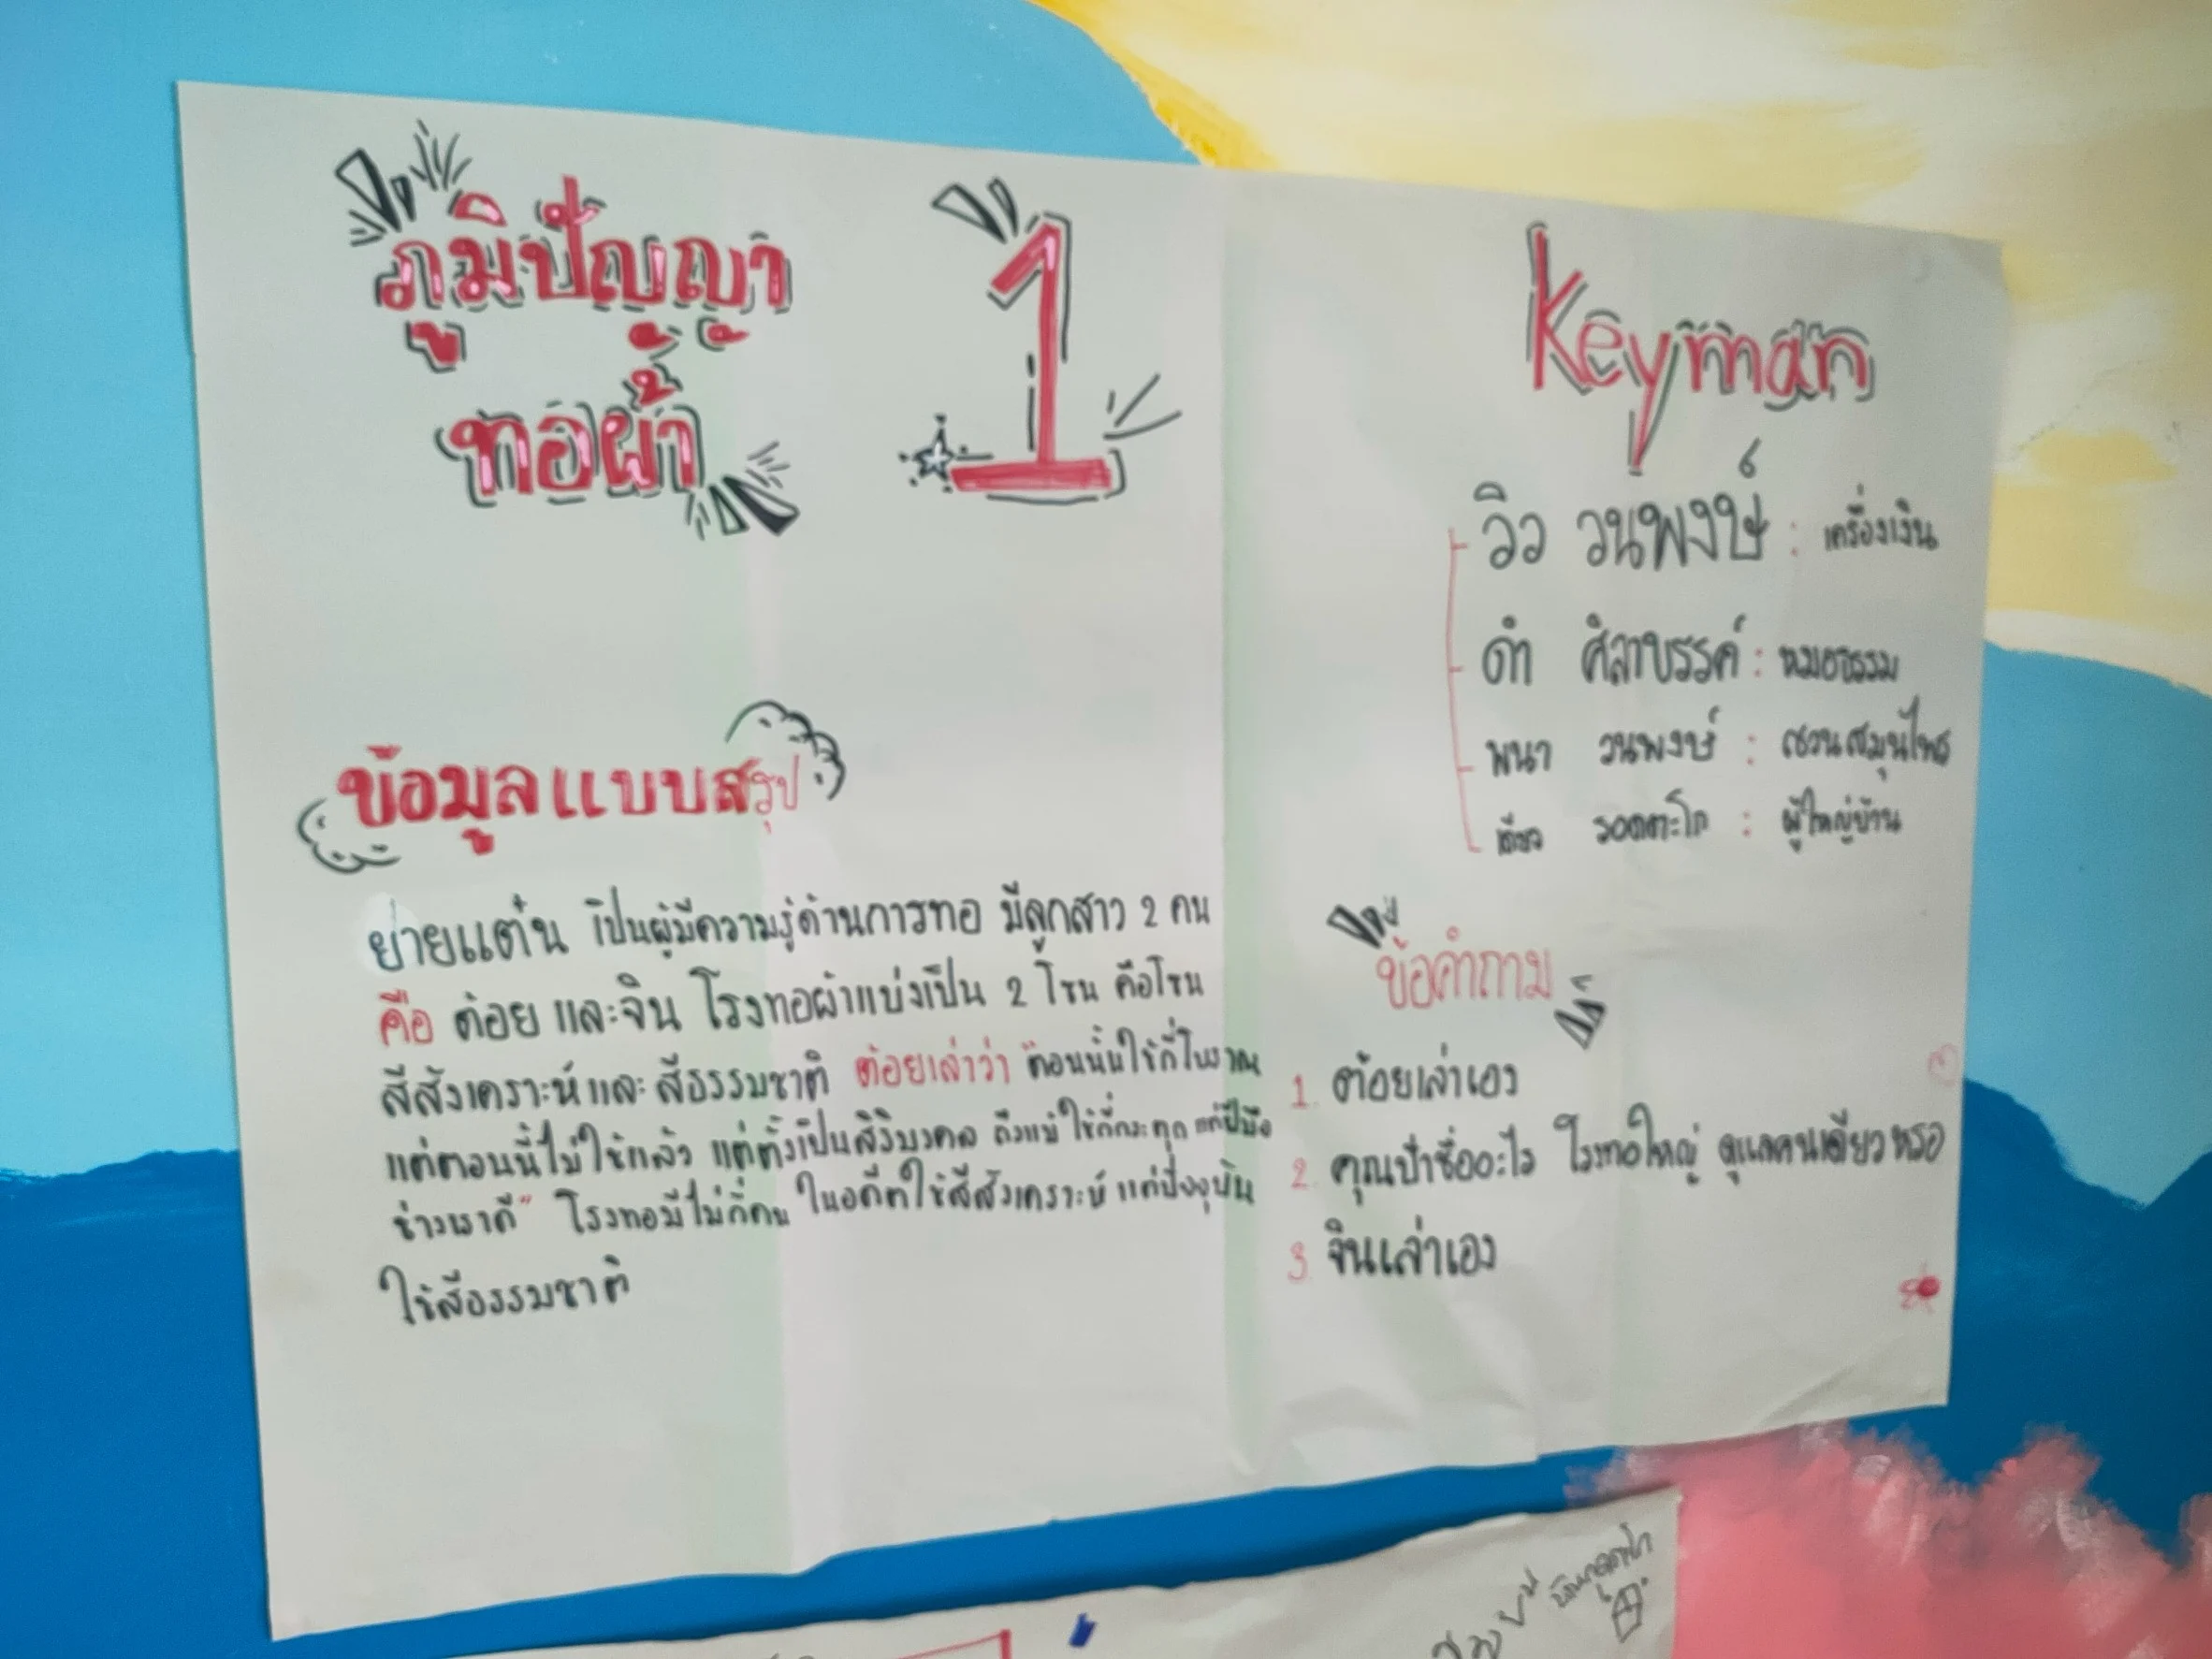 ภูมิปัญญา
ทอผ้า
1
ข้อมูลแบบสรุป
ย่ายแต๋น เป็นผู้มีความรู้ด้านการทอ มีลูกสาว 2 คน
คือ ต้อย และจิน โรงทอผ้าแบ่งเป็น 2 โซน คือโซน
สีสังเคราะห์และสีธรรมชาติ ต้อยเล่าว่า "ตอนนั้นใช้กี่โบราณ
แต่ตอนนี้ไม่ใช้แล้ว แต่ตั้งเป็นสิริมงคล ถึงแม้ใช้กี่กระตุก แต่ฝีมือ
ช่างเราดี" โรงทอมีไม่กี่คน ในอดีตใช้สีสังเคราะห์ แต่ปัจจุบัน
ใช้สีธรรมชาติ
Keyman
วิว วนพงษ์ : เครื่องเงิน
ดำ ศิลาบรรค์ : หมอธรรม
พนา วนพงษ์ : สวนสมุนไพร
รอตตะโก : ผู้ใหญ่บ้าน
ข้อคำถาม
1. ต้อยเล่าเอง
2. คุณป้าชื่ออะไร โรงทอใหญ่ ดูแลคนเดียวหรอ
3. จินเล่าเอง